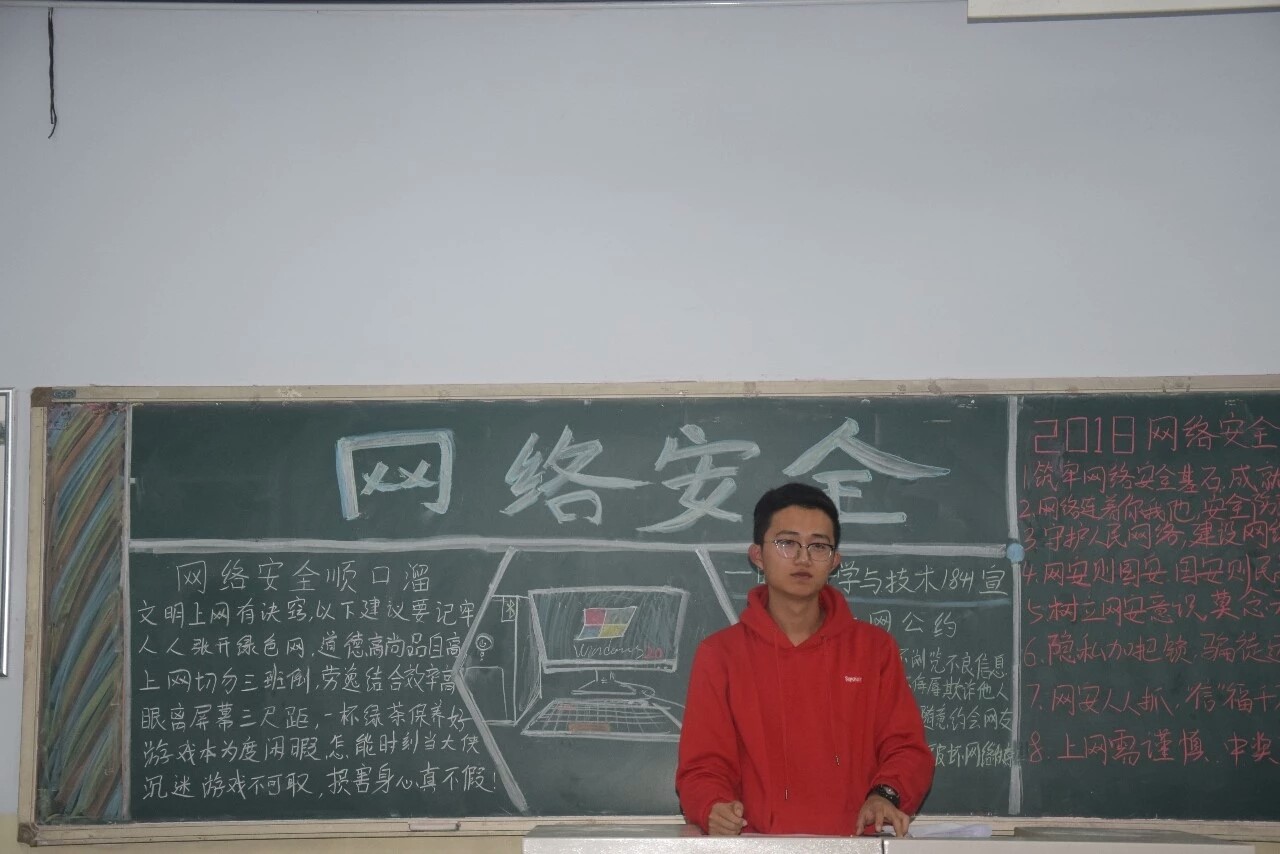 网络安全
网络安全顺口溜
文明上网有诀窍,以下建议要记牢
人人张开绿色网,道德高尚品自高
上网切勿三班倒,劳逸结合效率高
眼离屏幕三尺距,一杯绿茶保养好
游戏本为度闲暇,怎能时刻当大侠
沉迷游戏不可取,损害身心真不假!
Windows
学与技术1841宣
网公约
浏览不良信息
侮辱欺诈他人
随意约会网友
破坏网络
2018网络安全
1.筑牢网络安全基石,成
2.网络连着你我他,安全
3.守护人民网络,建设网络
4.网安则国安.国安则民
5.树立网安意识,莫念
6.隐私加把锁,骗徒
7.网安人人抓,信福千
8.上网需谨慎.中奖